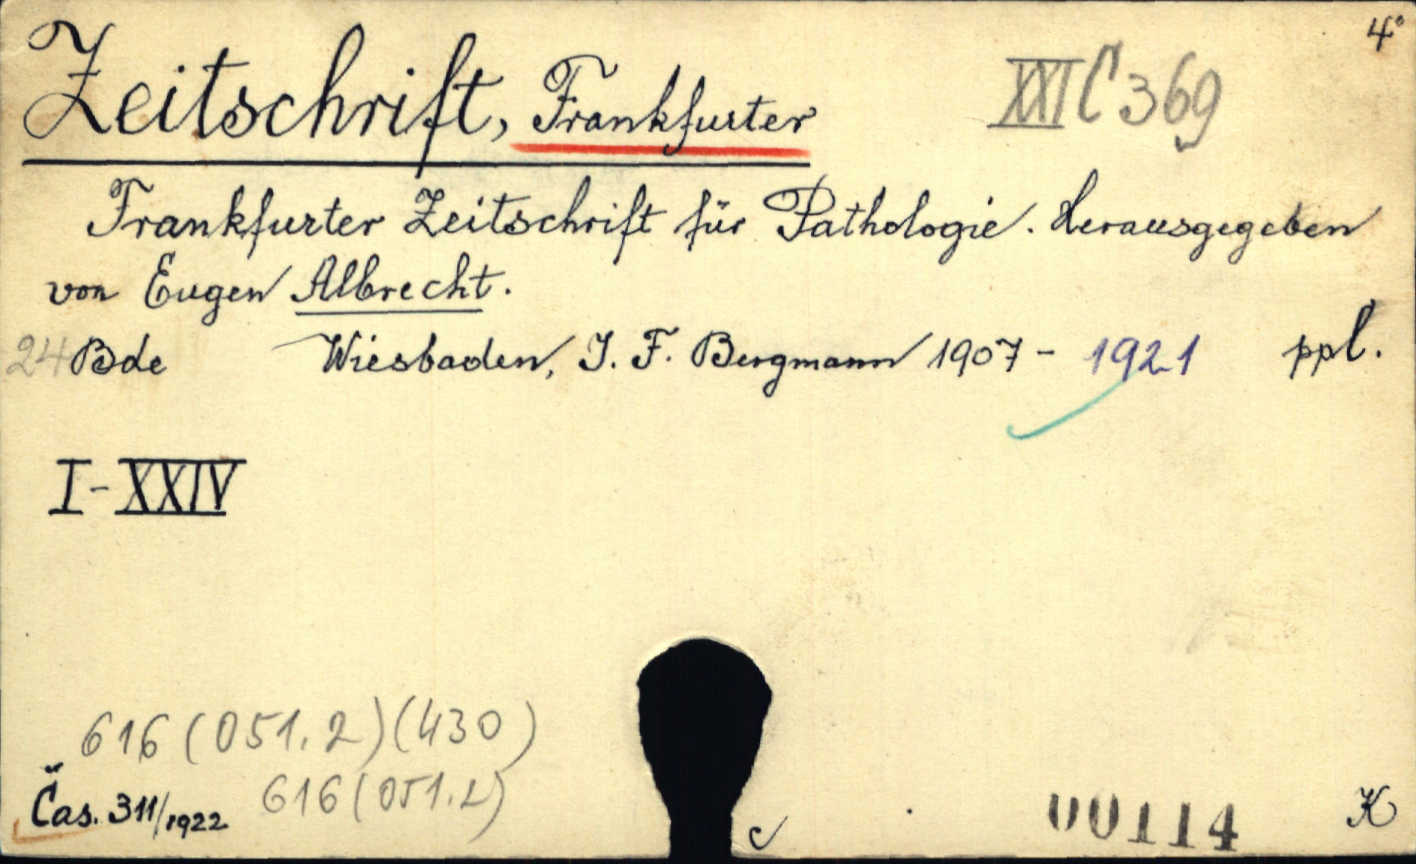 4°
Zeitschrift, Frankfurter XXI C 369
Frankfurter Zeitschrift für Pathologie. Herausgegeben
von Eugen Albrecht.
24 Bde Wiesbaden, J. F. Bergmann 1907 - 1921 ppl.
I-XXIV
616 (051.2) (430)
616 (051.2)
Čas. 311/1922
00114 K